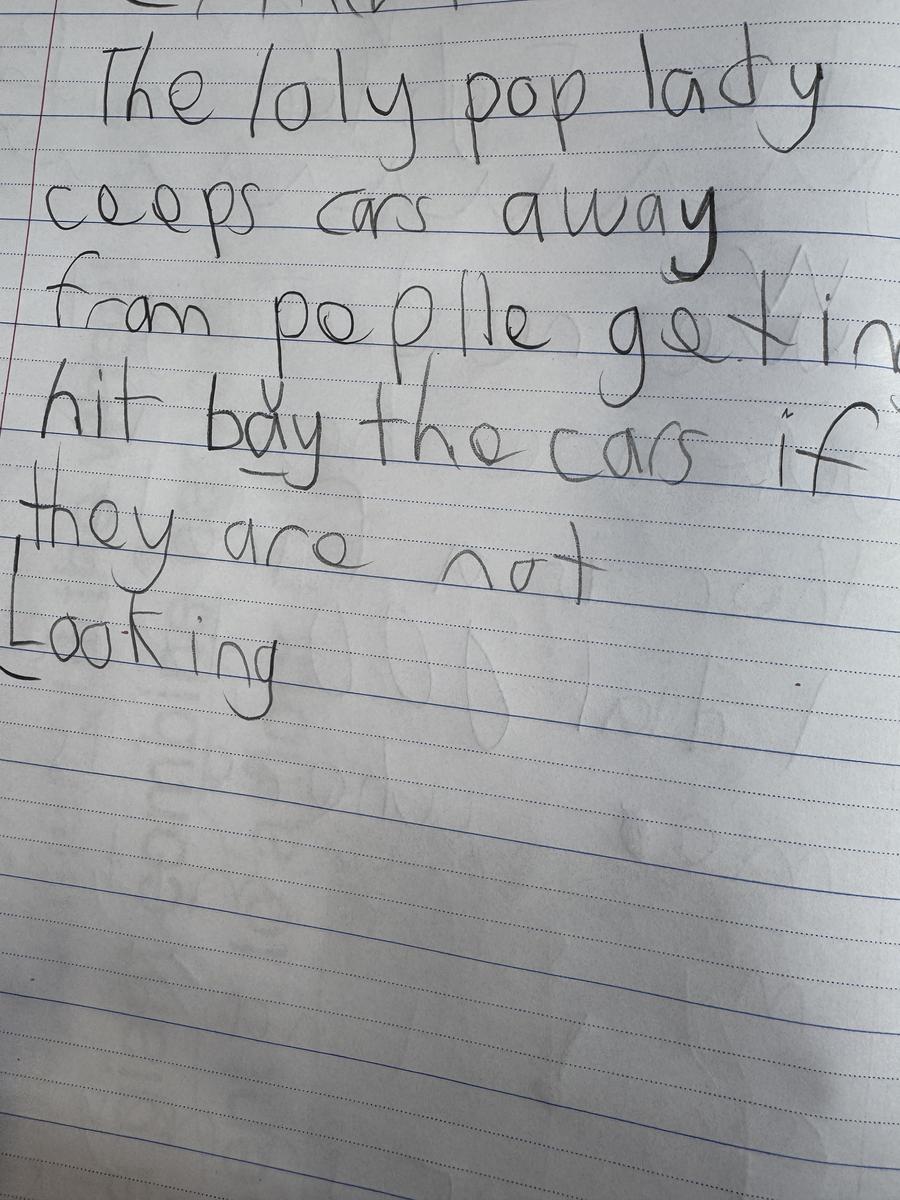 The loly pop lady
ceeps cars away
from poplle getin
hit bay the cars if
they are not
Looking